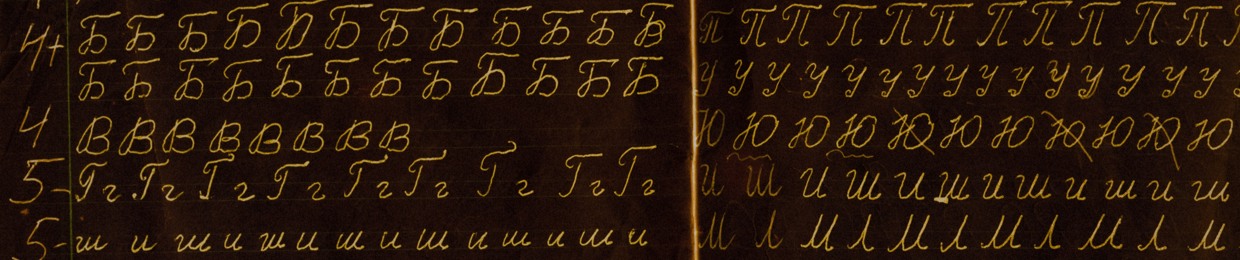 4+ Б Б Б Б Б Б Б Б Б Б Б В
Б Б Б Б Б Б Б Б Б Б Б Б
4 В В В В В В В В
5- Г г Г г Г г Г г Г г Г г Г г Г г Г г
5- ш и ш и ш и ш и ш и ш и ш и
П П П П П П П П П П П
у у у у у у у у у у у у у у у
Ю Ю Ю Ю Ю Ю Ю Ю Ю Ю Ю
И Ш И Ш И Ш и ш и ш и ш
М Л М Л М Л М Л М Л М